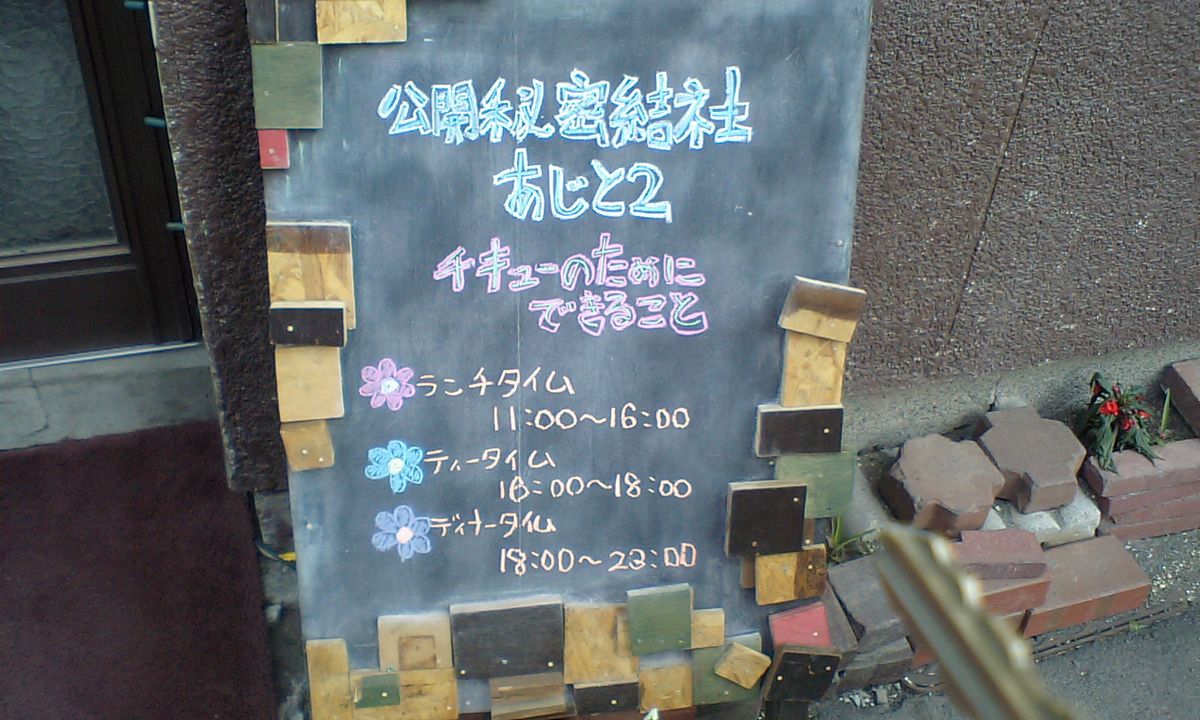 公開秘密結社
あじと2
チキューのために
できること
ランチタイム
11:00〜16:00
ティータイム
16:00〜18:00
ディナータイム
18:00〜23:00